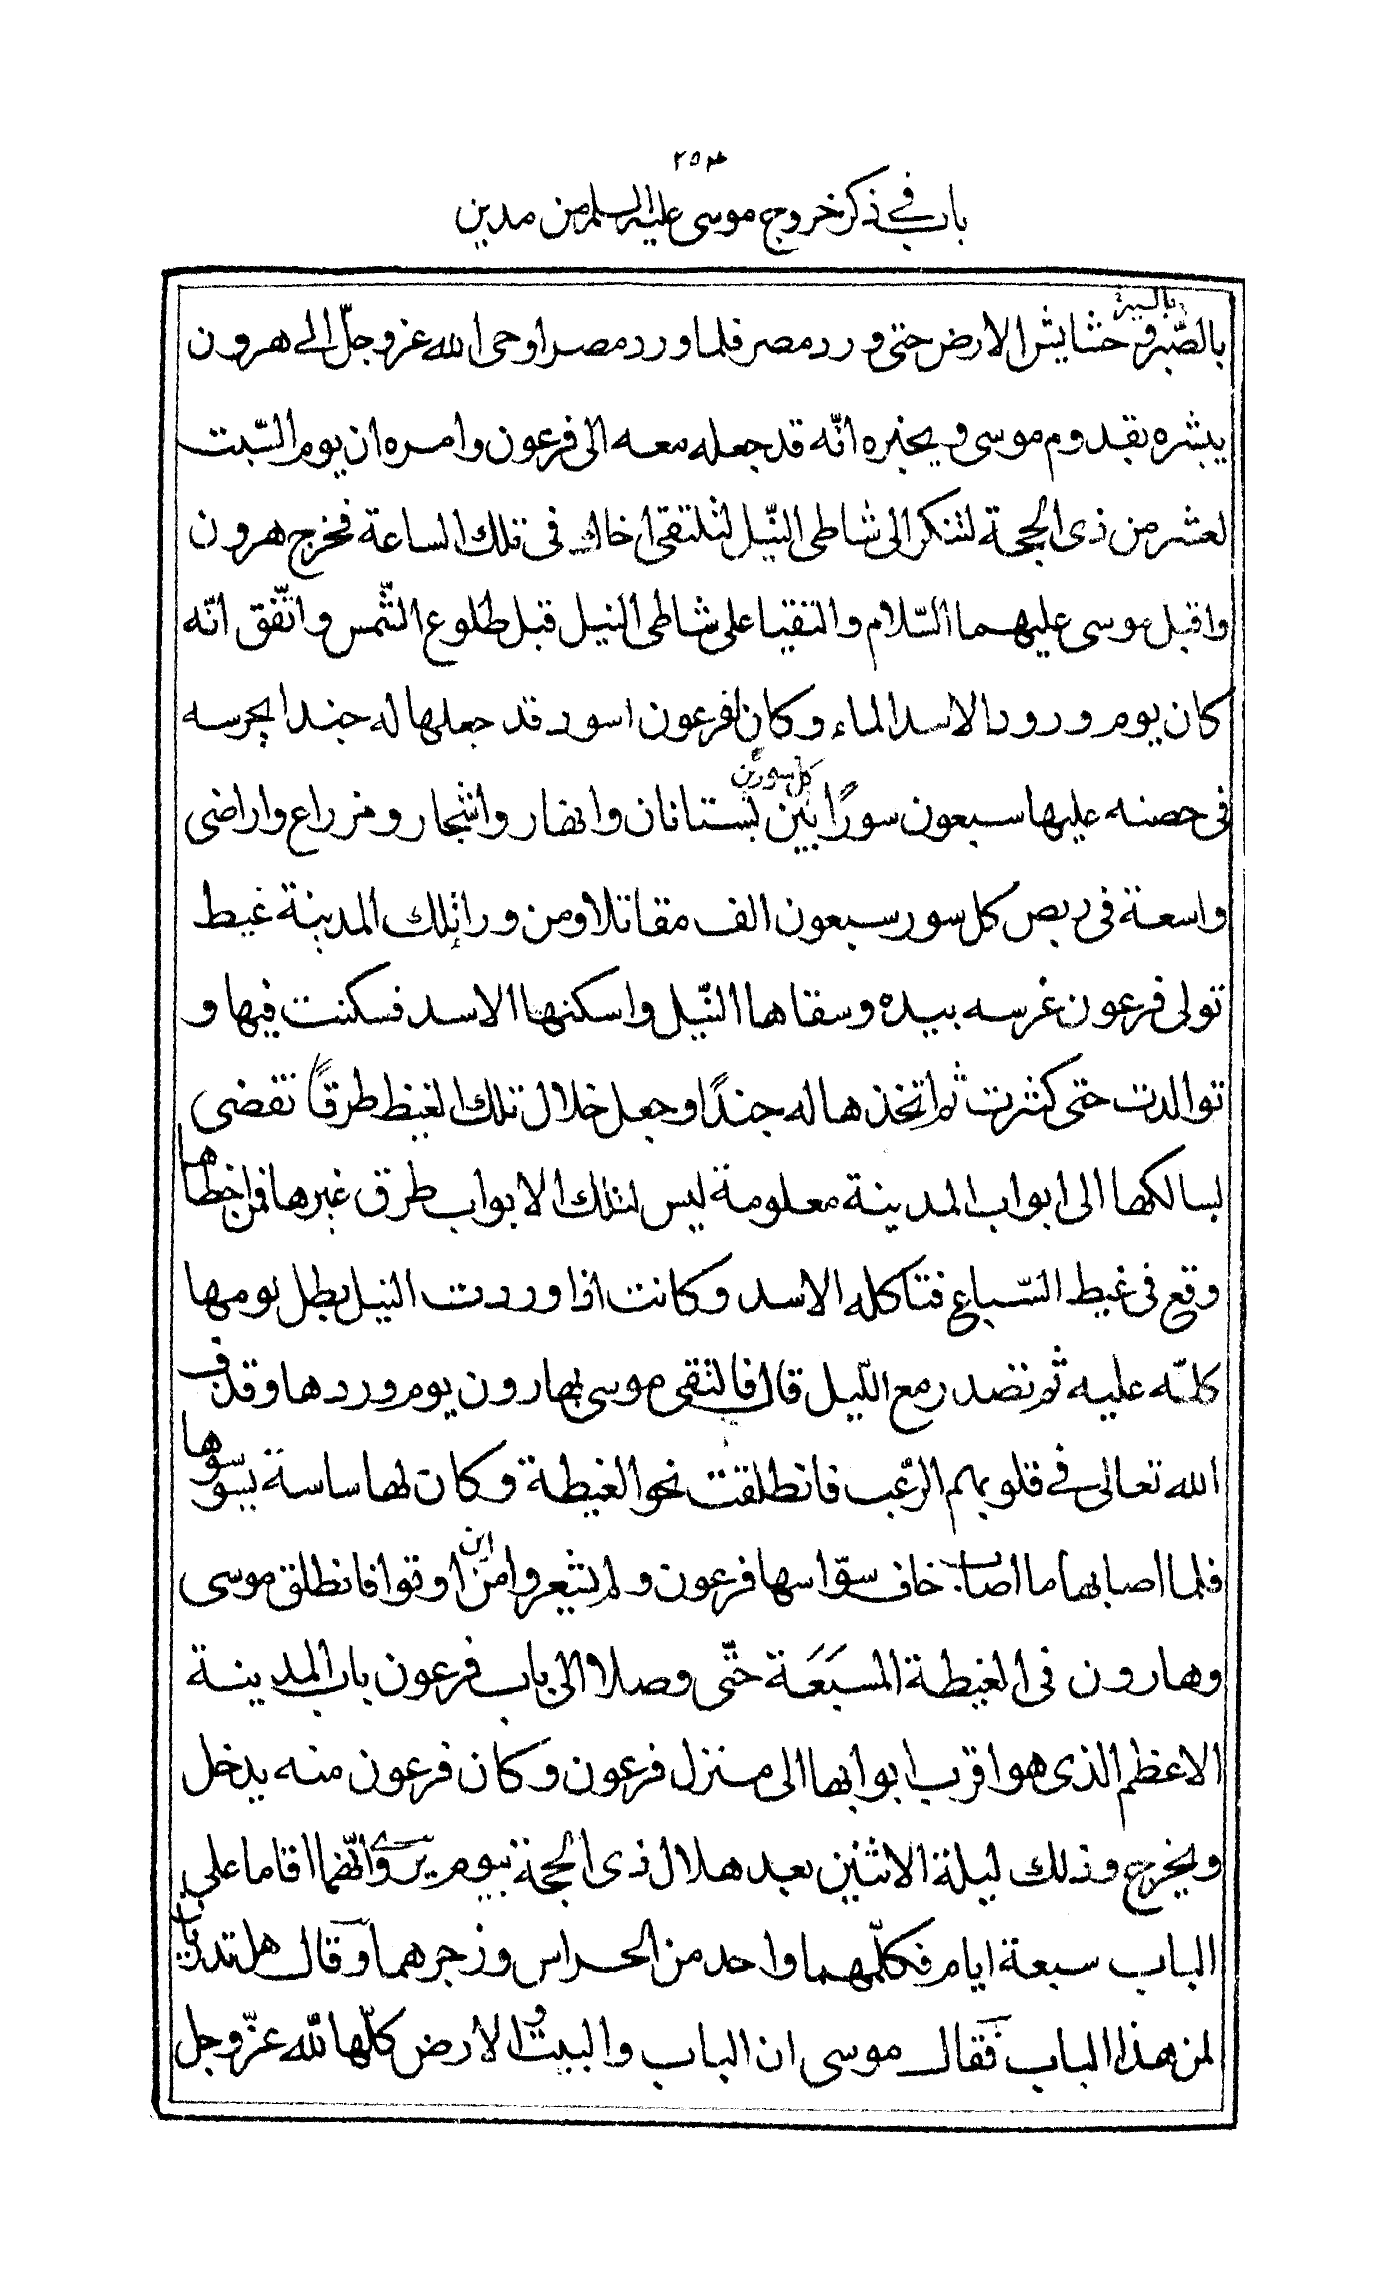 ٢٥٣
باب في ذكر خروج موسى عليه السلم من مدين
بالسير
بالصّبر وحشايش الارض حتى ورد مصر فلما ورد مصر اوحى الله عز وجلّ الى هرون
يبشره بقدوم موسى ويخبره انّه قد جعله معه الى فرعون وامره ان يوم السّبت
لعشر من ذى الحجة لتنكر الى شاطى النّيل لتلتقى اخاك فى تلك الساعة فخرج هرون
واقبل موسى عليهما السّلام والتقيا على شاطى النيل قبل طلوع الشّمس واتّفق انّه
كان يوم ورود الاسد الماء وكان لفرعون اسود قد جعلها له جندا يحرسه
كل سورين
فى حصنه عليها سبعون سورًا بين بستانان وانهار واشجار ومزراع واراضى
واسعة فى ربض كل سور سبعون الف مقاتلا ومن ورا تلك المدينة غيط
تولى فرعون غرسه بيده وسقاها النّيل واسكنها الاسد فسكنت فيها و
توالدت حتى كثرت ثم اتخذها له جندًا وجعل خلال تلك الغيظ طرقًا تفضى
لسالكها الى ابواب المدينة معلومة ليس لتلك الابواب طرق غيرها فمن اخطاها
وقع فى غيط السّباع فتاكله الاسد وكانت اذا وردت النيل يظل يومها
كلّه عليه ثم تصدر مع اللّيل قال فالتقى موسى بهارون يوم وردها وقذف
الله تعالى في قلوبهم الرّعب فانطلقت نحو الغيطة وكان لها ساسة يسوسوها
فلما اصابها ما اصاب خاف سوّاسها فرعون ولم يشعروا من اين اوتوا فانطلق موسى
وهارون فى الغيطة المسبَعَة حتّى وصلا الى باب فرعون باب المدينة
الاعظم الذى هو اقرب ابوابها الى منزل فرعون وكان فرعون منه يدخل
ويخرج وذلك ليلة الاثنين بعد هلال ذى الحجة بيوم وانّهما اقاما على
الباب سبعة ايام فكلّمهما واحد من الحراس وزجرهما وقال هل تدريان
لمن هذا الباب فقال موسى ان الباب والبيت والارض كلّها لله عزّ وجل